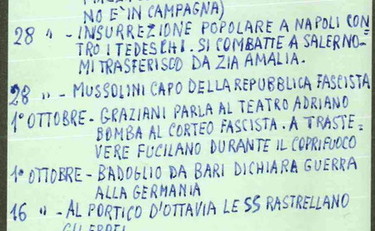 NO E' IN CAMPAGNA)
28 " - INSURREZIONE POPOLARE A NAPOLI CON_
TRO I TEDESCHI. SI COMBATTE A SALERNO-
MI TRASFERISCO DA ZIA AMALIA.
28 " - MUSSOLINI CAPO DELLA REPUBBLICA FASCISTA
1° OTTOBRE - GRAZIANI PARLA AL TEATRO ADRIANO
BOMBA AL CORTEO FASCISTA. A TRASTE_
VERE FUCILANO DURANTE IL COPRIFUOCO
1° OTTOBRE - BADOGLIO DA BARI DICHIARA GUERRA
ALLA GERMANIA
16 " - AL PORTICO D'OTTAVIA LE SS RASTRELLANO
GLI EBREI